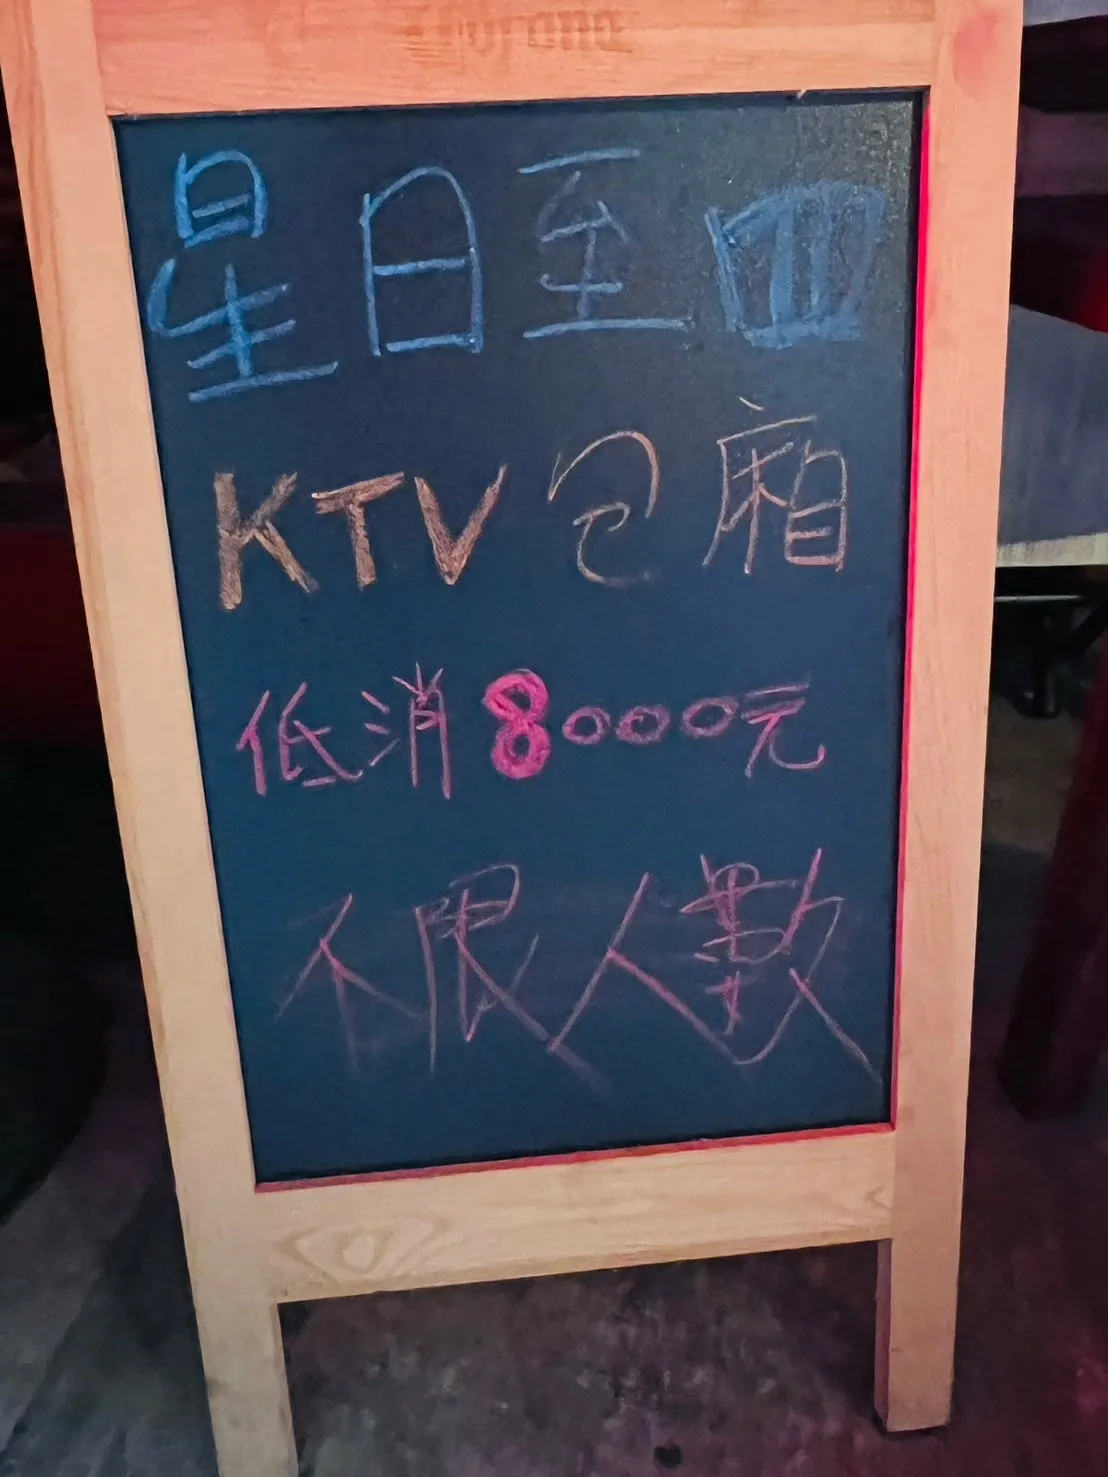 Corona
星日至四
KTV包廂
低消8000元
不限人數